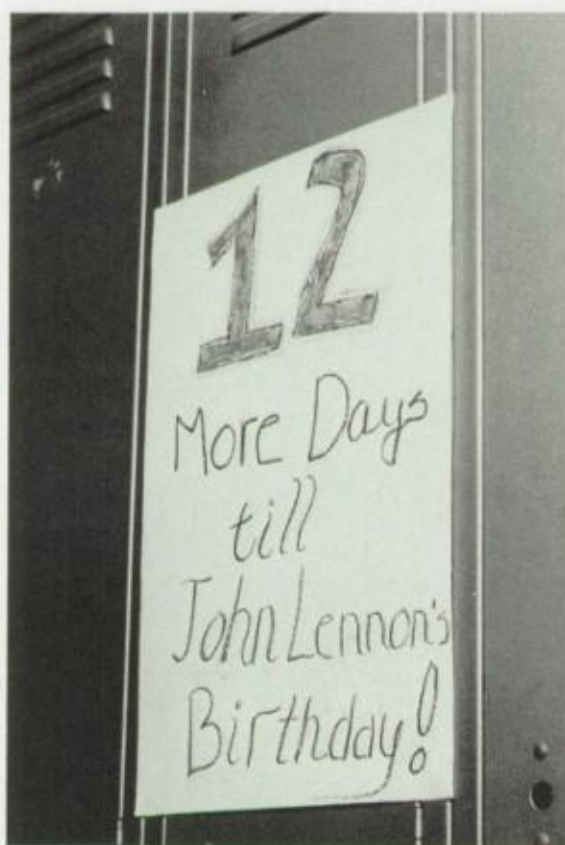 12
More Days
till
John Lennon's
Birthday!